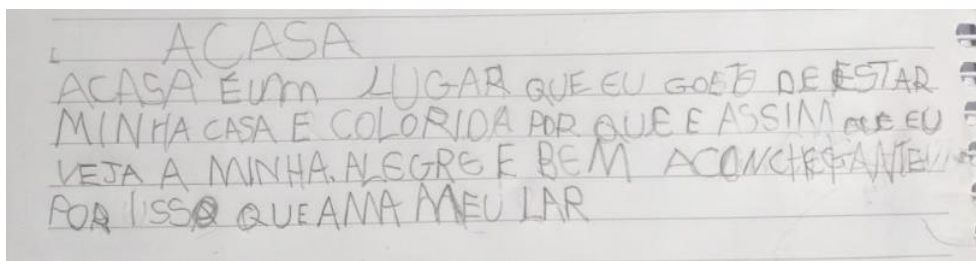 ACASA
ACASA É UM LUGAR QUE EU GOSTO DE ESTAR
MINHA CASA E COLORIDA POR QUE E ASSIM QUE EU
VEJA A MINHA. ALEGRE E BEM ACONCHEGANTE
POR ISSO QUE AMA MEU LAR